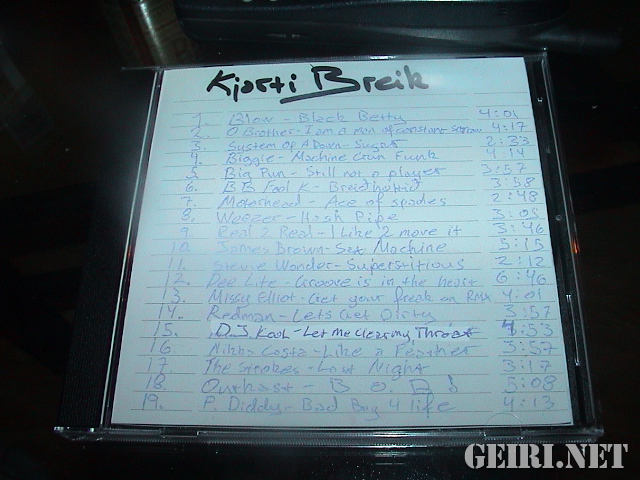 Kjarti Breik
1. Blow - Black Betty 4:01
2. O Brother - I am a man of constant sorrow 4:17
3. System Of A Down - Sugar 2:33
4. Biggie - Machine Gun Funk 4:14
5. Big Pun - Still not a player 3:57
6. BB Fool K - Breidholtid 3:58
7. Motorhead - Ace of spades 2:48
8. Weezer - Hash Pipe 3:05
9. Real 2 Real - I like 2 move it 3:46
10. James Brown - Sex Machine 3:15
11. Stevie Wonder - Superstitious 2:12
12. Dee Lite - Groove is in the heart 6:46
13. Missy Elliot - Get your freak on RMX 4:01
14. Redman - Lets Get Dirty 3:57
15. D.J. Kool - Let me Clear my Throat 4:53
16. Nikka Costa - Like a Feather 3:57
17. The Strokes - Last Night 3:17
18. Outkast - B.O.B! 5:08
19. P. Diddy - Bad Boy 4 life 4:13
GEIRI.NET